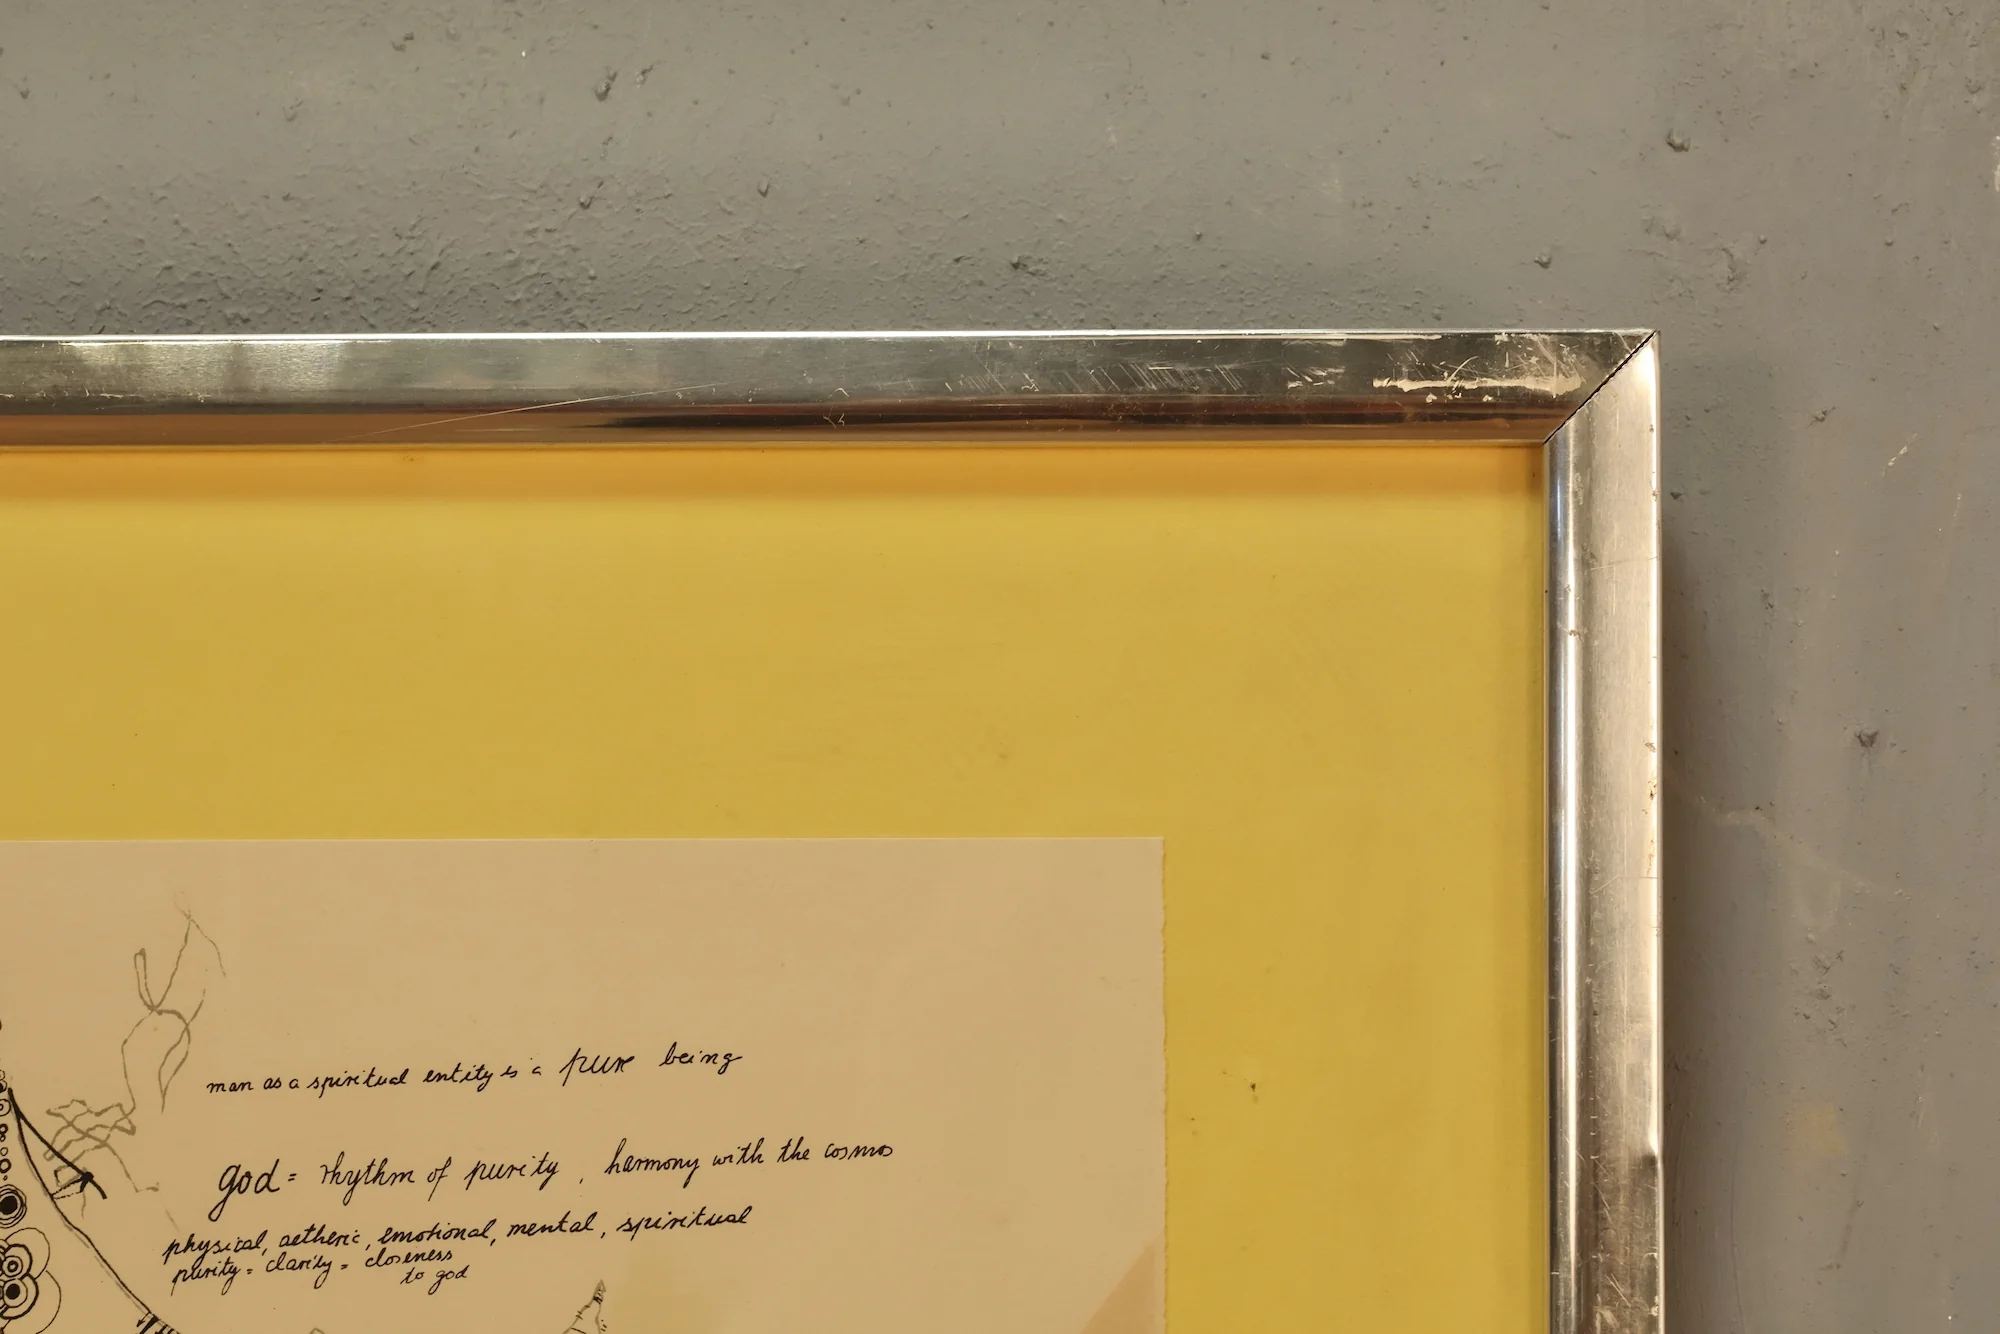 man as a spiritual entity is a pure being
god = rhythm of purity , harmony with the cosmos
physical, aetheric, emotional, mental, spiritual
purity = clarity = closeness
to god